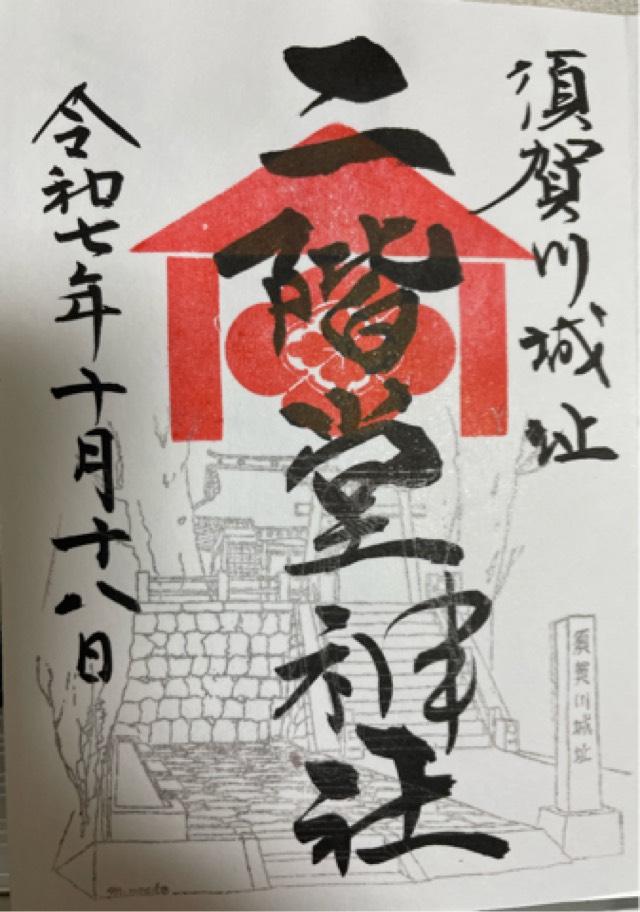 須賀川城址
二階堂神社
令和七年十月十八日
須賀川城址